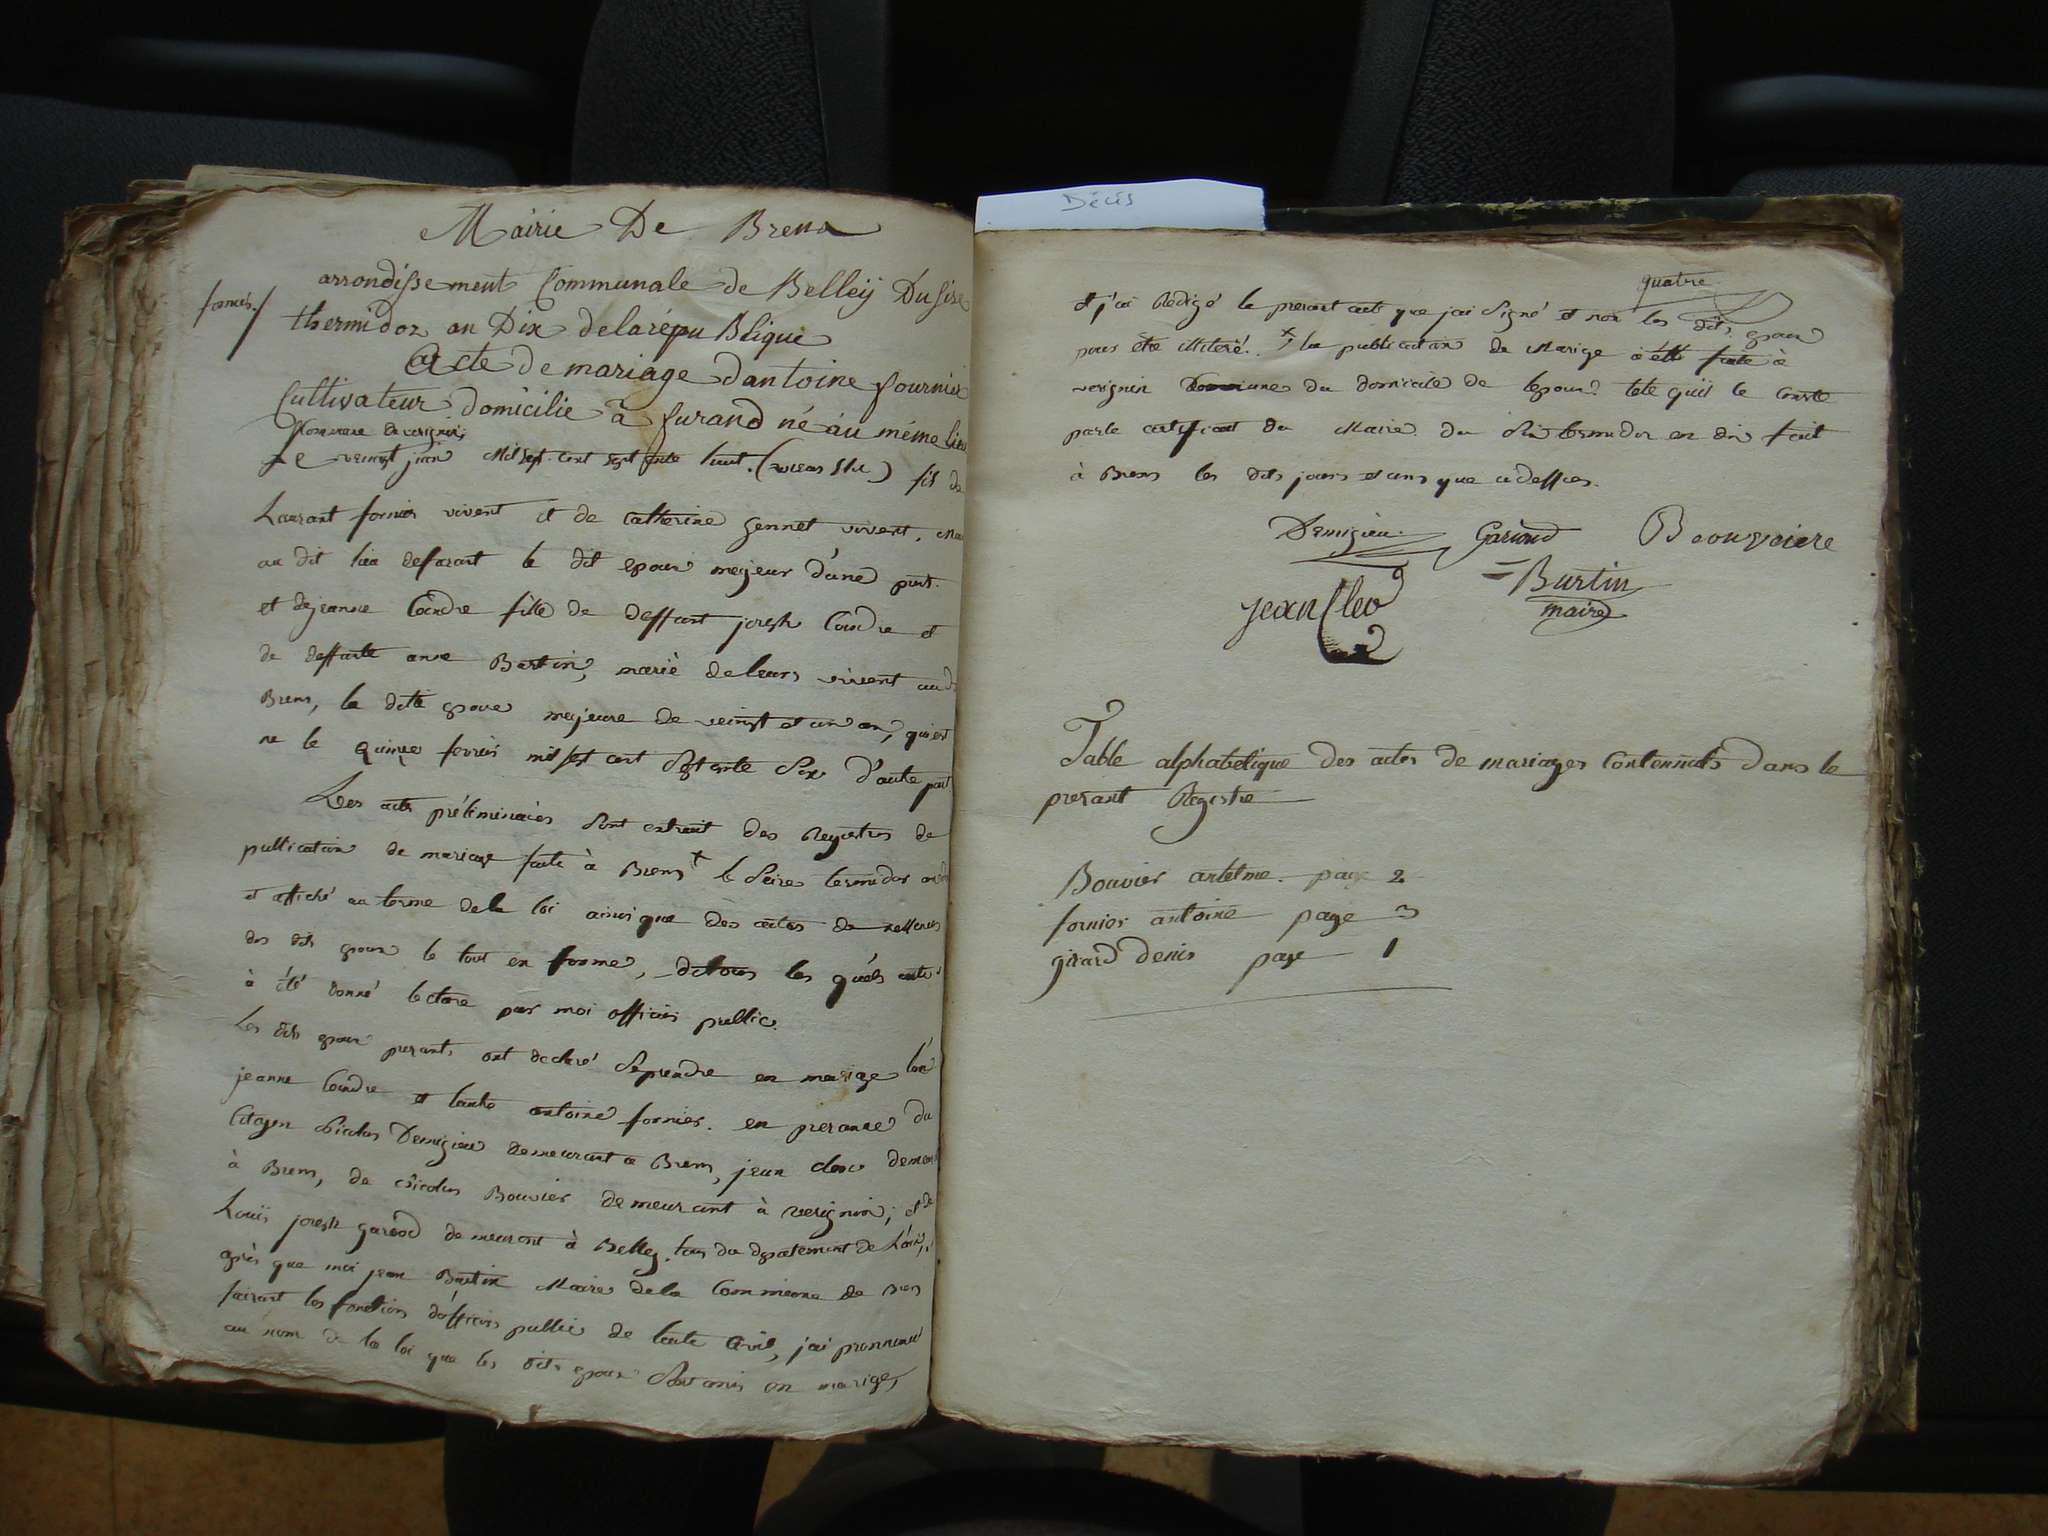 Mairie De Brens
arrondissement Communale de Belleÿ Du seze
fornier./
thermidor an Dix de la répu Blique
acte de mariage d'antoine fournier
Cultivateur domicilié à furand né au méme lieu
Commune de verignin
le veingt juin Mil sept cent sept ente huit. (vieux stil) fils de
Laurant fornier vivent et de Catherine vivent,
au dit lieu le dit epoux mejeur d'une part.
et de jeanne Coindre fille de deffunt joseph Coindre et
de deffunte anne Bertin, marié de leurs vivent au dt
Brens, la ditte epouse mejeure de veingt et un an, qui est
né le quinze fevrier mil sept cent septente six d'autre part
Les acts préliminaires sont extrait des Registres de
publication de mariage faite à Brens + le seize termidor an
et affiché au terme de la loi ainsi que des actes de
des dits epoux le tout en forme, de tous les quels acte
à été donné lecture par moi officier public.
Les dits epoux presants ont declaré se prendre en mariage lun
jeanne Coindre et lautre antoine fornier. en presance du
Citoyen Nicolas Demizieu demeurant a Brens, jean cleo demeu
à Brens, de Nicolas Bouvier demeurant à verignin; et de
Louis joseph gariod demeurant à Belley. tous du departement de l'ain,
après que moi jean Burtin Maire de la Commune de Brens
faisant les fonctions d'officier public de l'etat Civil, j'ai prononcé
au nom de la loi que les dits epoux sont unis en mariage,
Décès
quatre
et j'ai Rédigé le presant acte que jai signé et non les dits epoux
pour être illiteré. x la publication de Mariage à été faite à
verignin Commune du domicile de lepoux tele quil le conste
par le certificat du Maire du six termidor an dix fait
à Brens les dits jours et ans que cidessus.
Demizieu Gariod Bouvoiere
= Burtin
jean Cleo maire
Table alphabétique des actes de mariages Contennuts dans le
presant Registre
Bouvier antelme. page 2
fornier antoine page 3
girard denis page 1